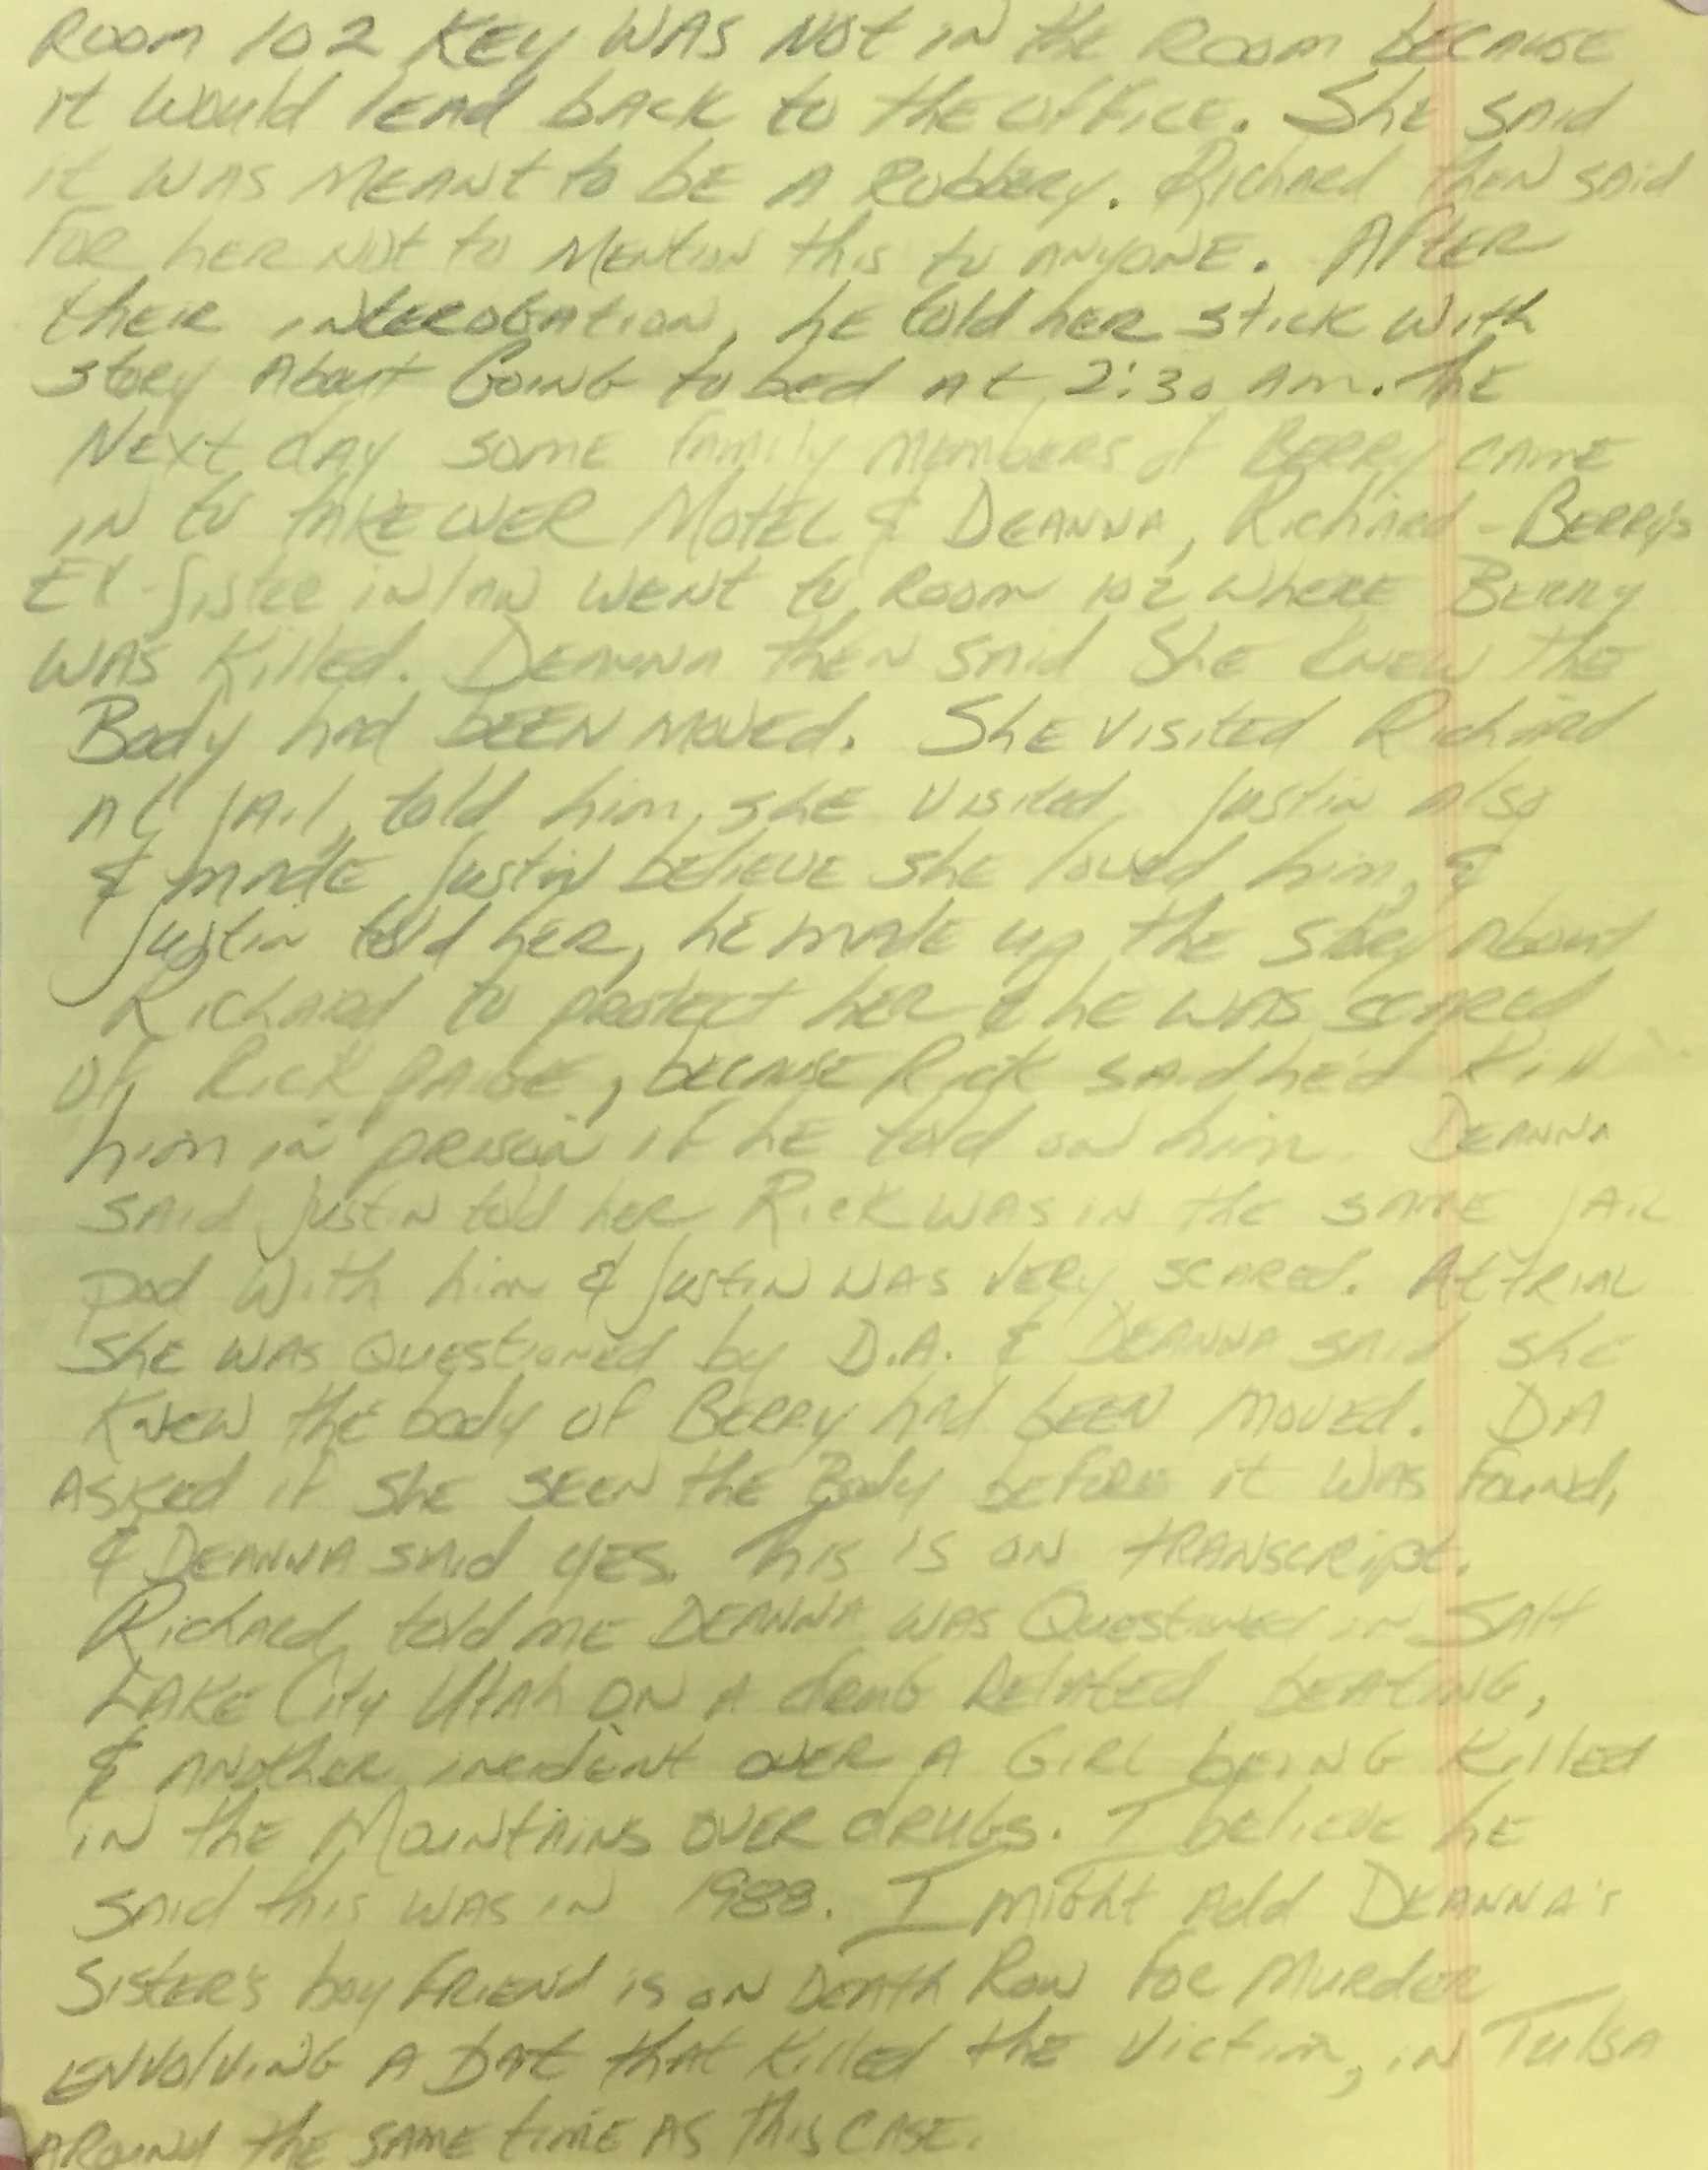 Room 102 Key was not in the Room because
it would lead back to the office. She said
it was meant to be a Robbery. Richard then said
for her not to mention this to anyone. After
their interogation, he told her stick with
story about Going to bed at 2:30 am. The
Next day some family members of Berry came
in to take over Motel & Deanna, Richard - Berry's
Ex-Sister in law went to Room 102 where Berry
was Killed. Deanna then said She knew the
Body had been moved. She visited Richard
at jail, told him, she visited Justin also
& made Justin believe she loved him, &
Justin told her, he made up the story about
Richard to protect her & he was scared
of Rick Paige, because Rick said he'd Kill
him in prison if he told on him. Deanna
said Justin told her Rick was in the same jail
pod with him & Justin was very scared. At trial
she was Questioned by D.A. & Deanna said she
Knew the body of Berry had been moved. DA
asked if she seen the Body before it was found,
& Deanna said yes. This is on transcript.
Richard told me Deanna was Questioned in Salt
Lake City Utah on a drug Related beating,
& another incident over a Girl being Killed
in the Mountains over drugs. I believe he
said this was in 1988. I might add Deanna's
Sister's boy friend is on Death Row for Murder
envolving a Bat that killed the victim, in Tulsa
around the same time as this case.